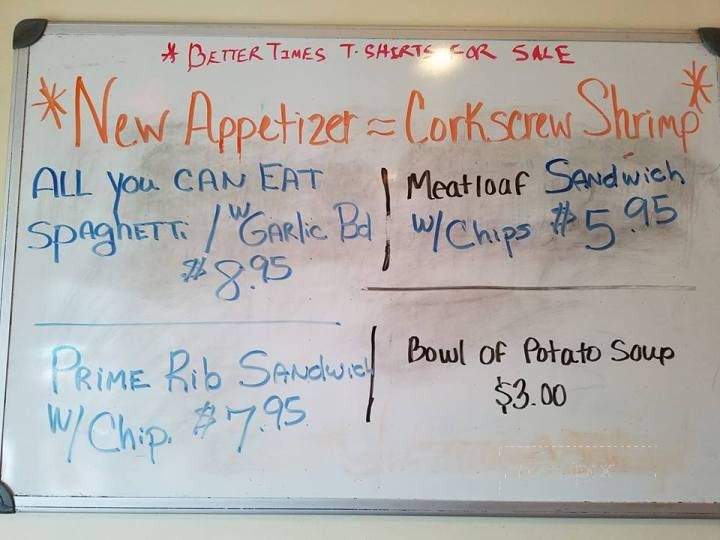 * BETTER TIMES T-SHIRTS FOR SALE
* New Appetizer ≈ Corkscrew Shrimp *
ALL You CAN EAT
SPAGHETTi / w GARlic Bd
$8.95
Meatloaf SANdwich
w/Chips $5.95
PRIME Rib SANdwich
w/Chip. $7.95
Bowl of Potato Soup
$3.00